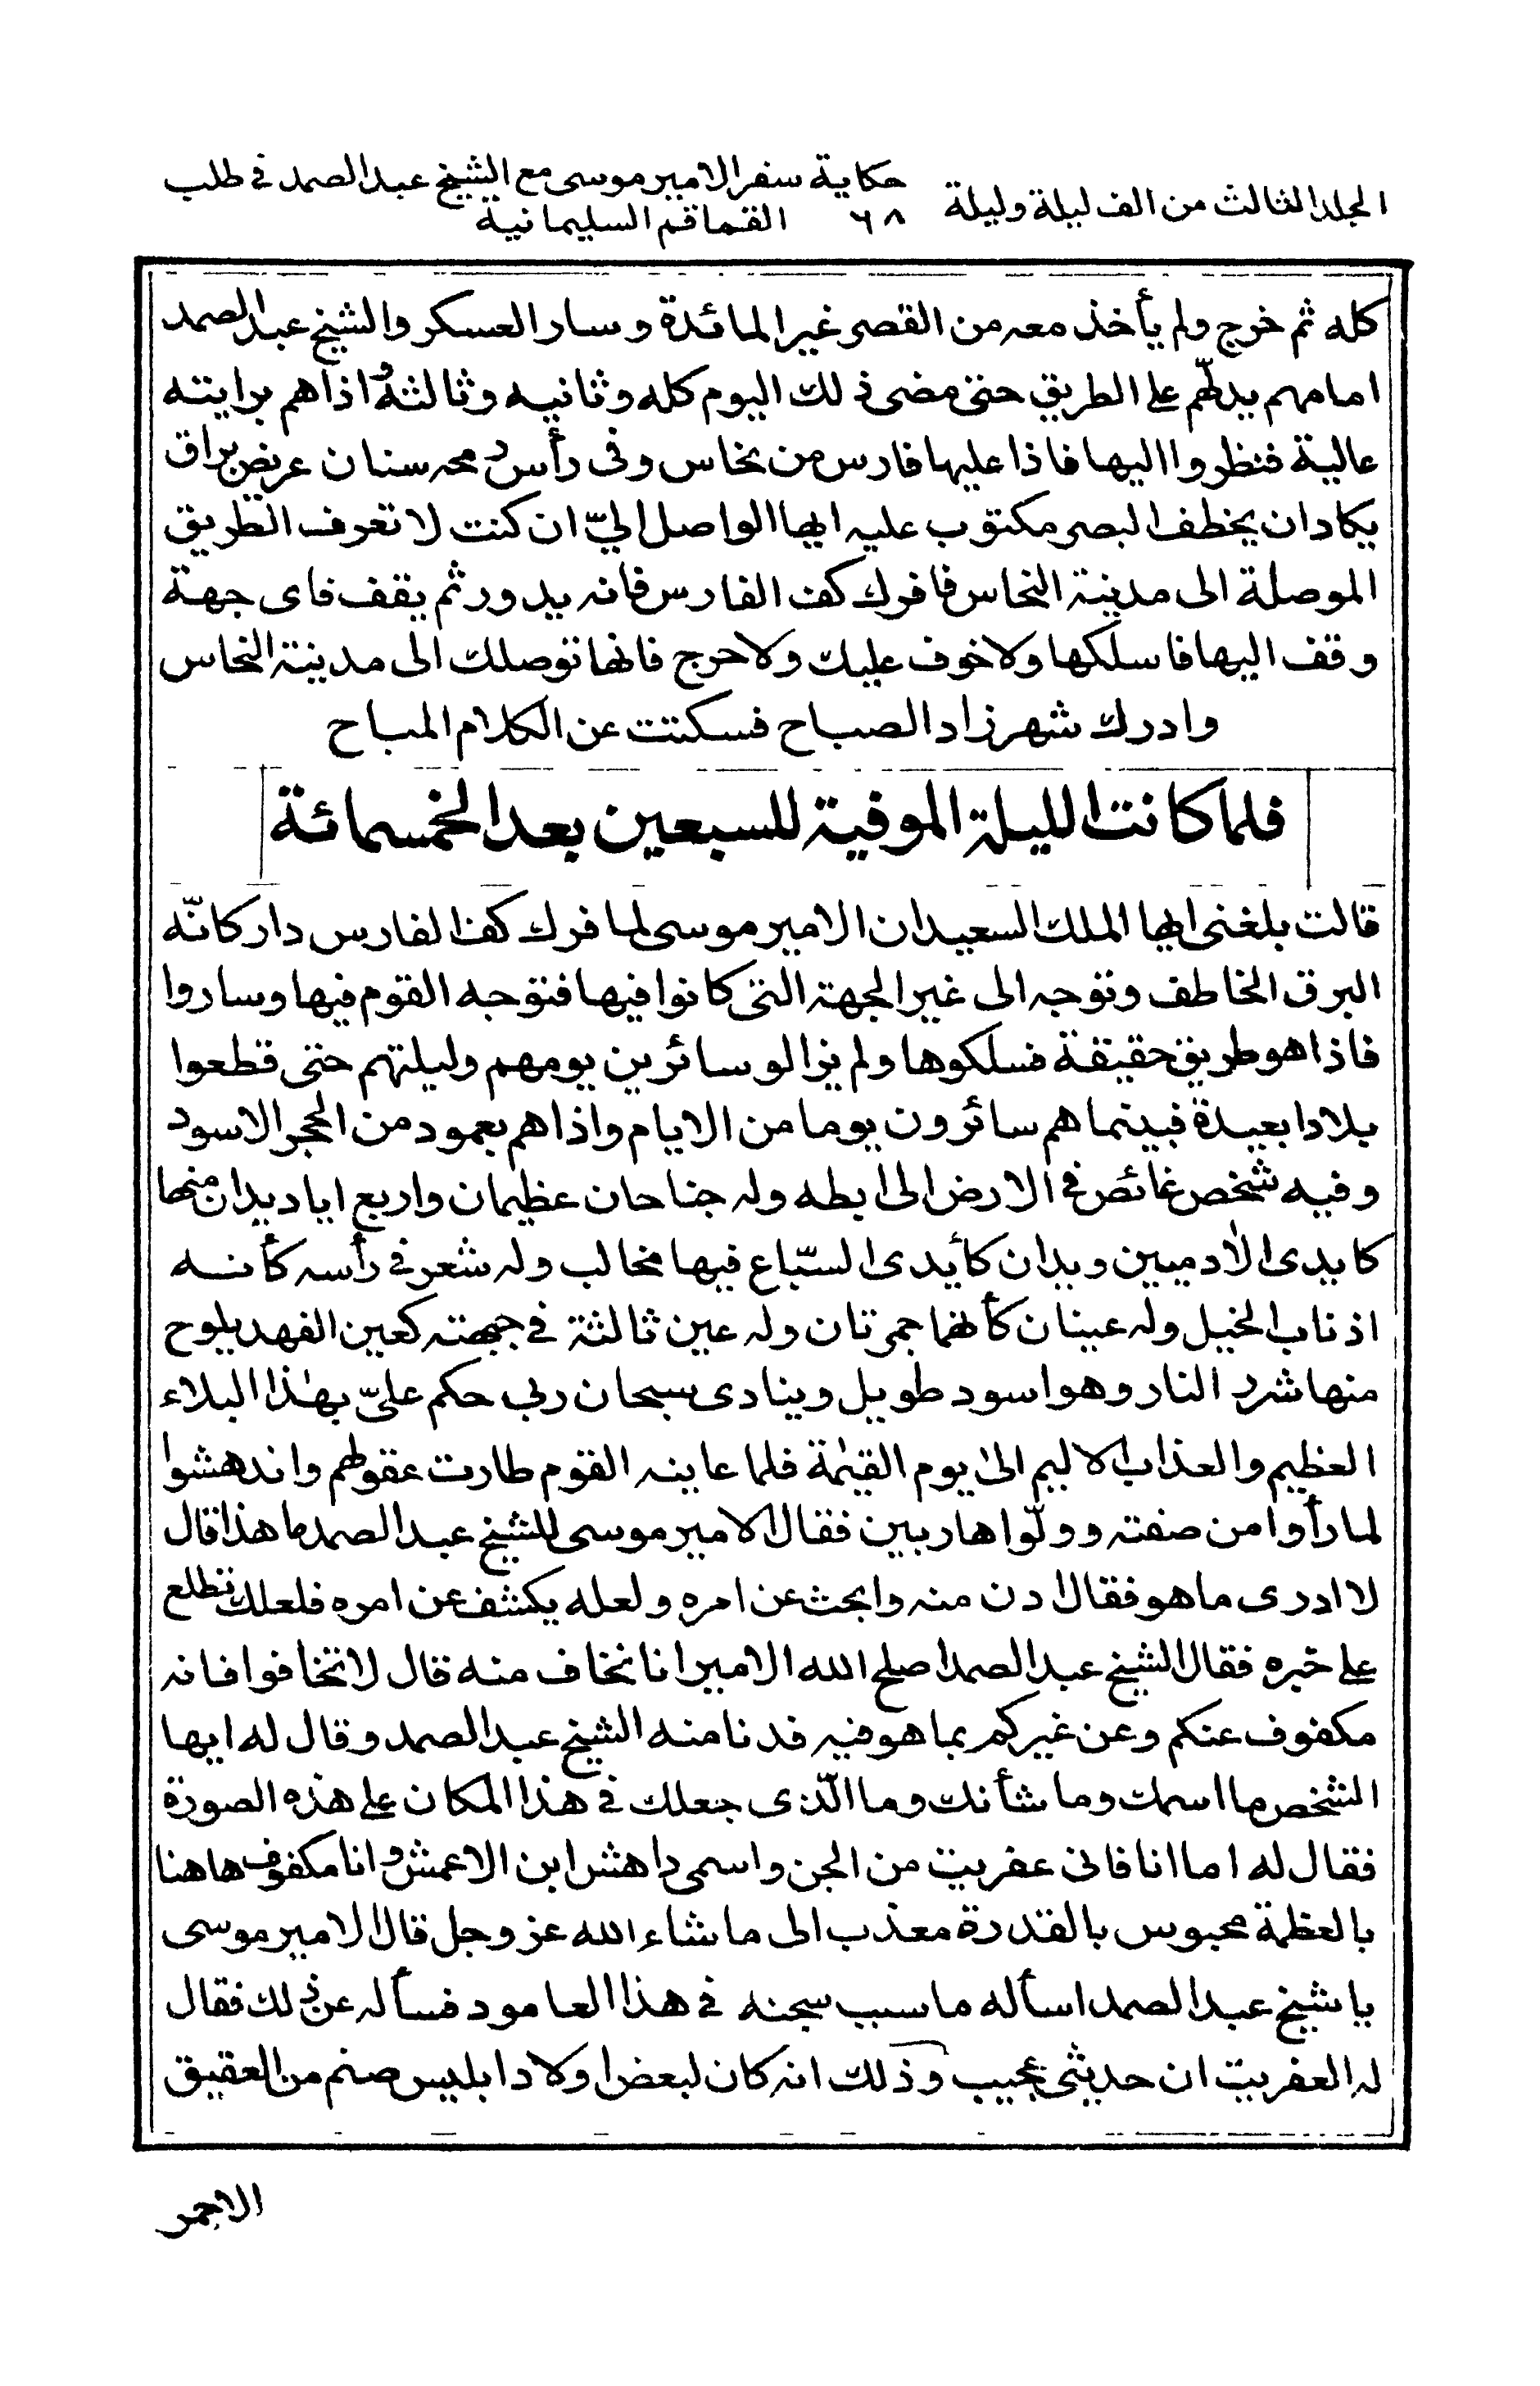 المجلد الثالث من الف ليلة وليلة ٦٨ حكاية سفر الامير موسى مع الشيخ عبد الصمد فى طلب
القماقم السليمانية
كله ثم خرج ولم يأخذ معه من القصر غير المائدة وسار العسكر والشيخ عبد الصمد
امامهم يدلّهم على الطريق حتى مضى ذلك اليوم كله وثانيه وثالثه واذا هم برابية
عالية فنظروا اليها فاذا عليها فارس من نحاس وفى رأس رمحه سنان عريض براق
يكاد ان يخطف البصر مكتوب عليه ايها الواصل اليّ ان كنت لا تعرف الطريق
الموصلة الى مدينة النحاس فافرك كف الفارس فانه يدور ثم يقف فاى جهة
وقف اليها فاسلكها ولا خوف عليك ولا حرج فانها توصلك الى مدينة النحاس
وادرك شهرزاد الصباح فسكتت عن الكلام المباح
فلما كانت الليلة الموفية للسبعين بعد الخمسمائة
قالت بلغنى ايها الملك السعيد ان الامير موسى لما فرك كف الفارس دار كانّه
البرق الخاطف وتوجه الى غير الجهة التى كانوا فيها فتوجه القوم فيها وساروا
فاذا هو طريق حقيقة فسلكوها ولم يزالو سائرين يومهم وليلتهم حتى قطعوا
بلادا بعيدة فبينما هم سائرون يوما من الايام واذا هم بعمود من الحجر الاسود
وفيه شخص غائص فى الارض الى ابطه وله جناحان عظيمان واربع اياد يدان منها
كايدى الاٰدميين ويدان كأيدى السّباع فيها مخالب وله شعر فى رأسه كأنه
اذناب الخيل وله عينان كأنهما جمرتان وله عين ثالثة فى جبهته كعين الفهد يلوح
منها شرر النار وهو اسود طويل وينادى سبحان ربى حكم عليّ بهٰذا البلاء
العظيم والعذاب الاليم الىٰ يوم القيٰمة فلما عاينه القوم طارت عقولهم واندهشوا
لما رأوا من صفته وولّوا هاربين فقال الامير موسى للشيخ عبد الصمد ما هذا قال
لا ادرى ما هو فقال ادن منه وابحث عن امره ولعله يكشف عن امره فلعلك تطلع
على خبره فقال الشيخ عبد الصمد اصلح الله الامير انا نخاف منه قال لا تخافوا فانه
مكفوف عنكم وعن غيركم بما هو فيه فدنا منه الشيخ عبد الصمد وقال له ايها
الشخص ما اسمك وما شأنك وما الّذى جعلك فى هذا المكان على هذه الصورة
فقال له اما انا فانى عفريت من الجن واسمى داهش ابن الاعمش وانا مكفوف هاهنا
بالعظمة محبوس بالقدرة معذب الى ما شاء الله عز وجل قال الامير موسى
يا شيخ عبد الصمد اسأله ما سبب سجنه فى هذا العامود فسأله عن ذلك فقال
له العفريت ان حديثى عجيب وذلك انه كان لبعض اولاد ابليس صنم من العقيق
الاحمر